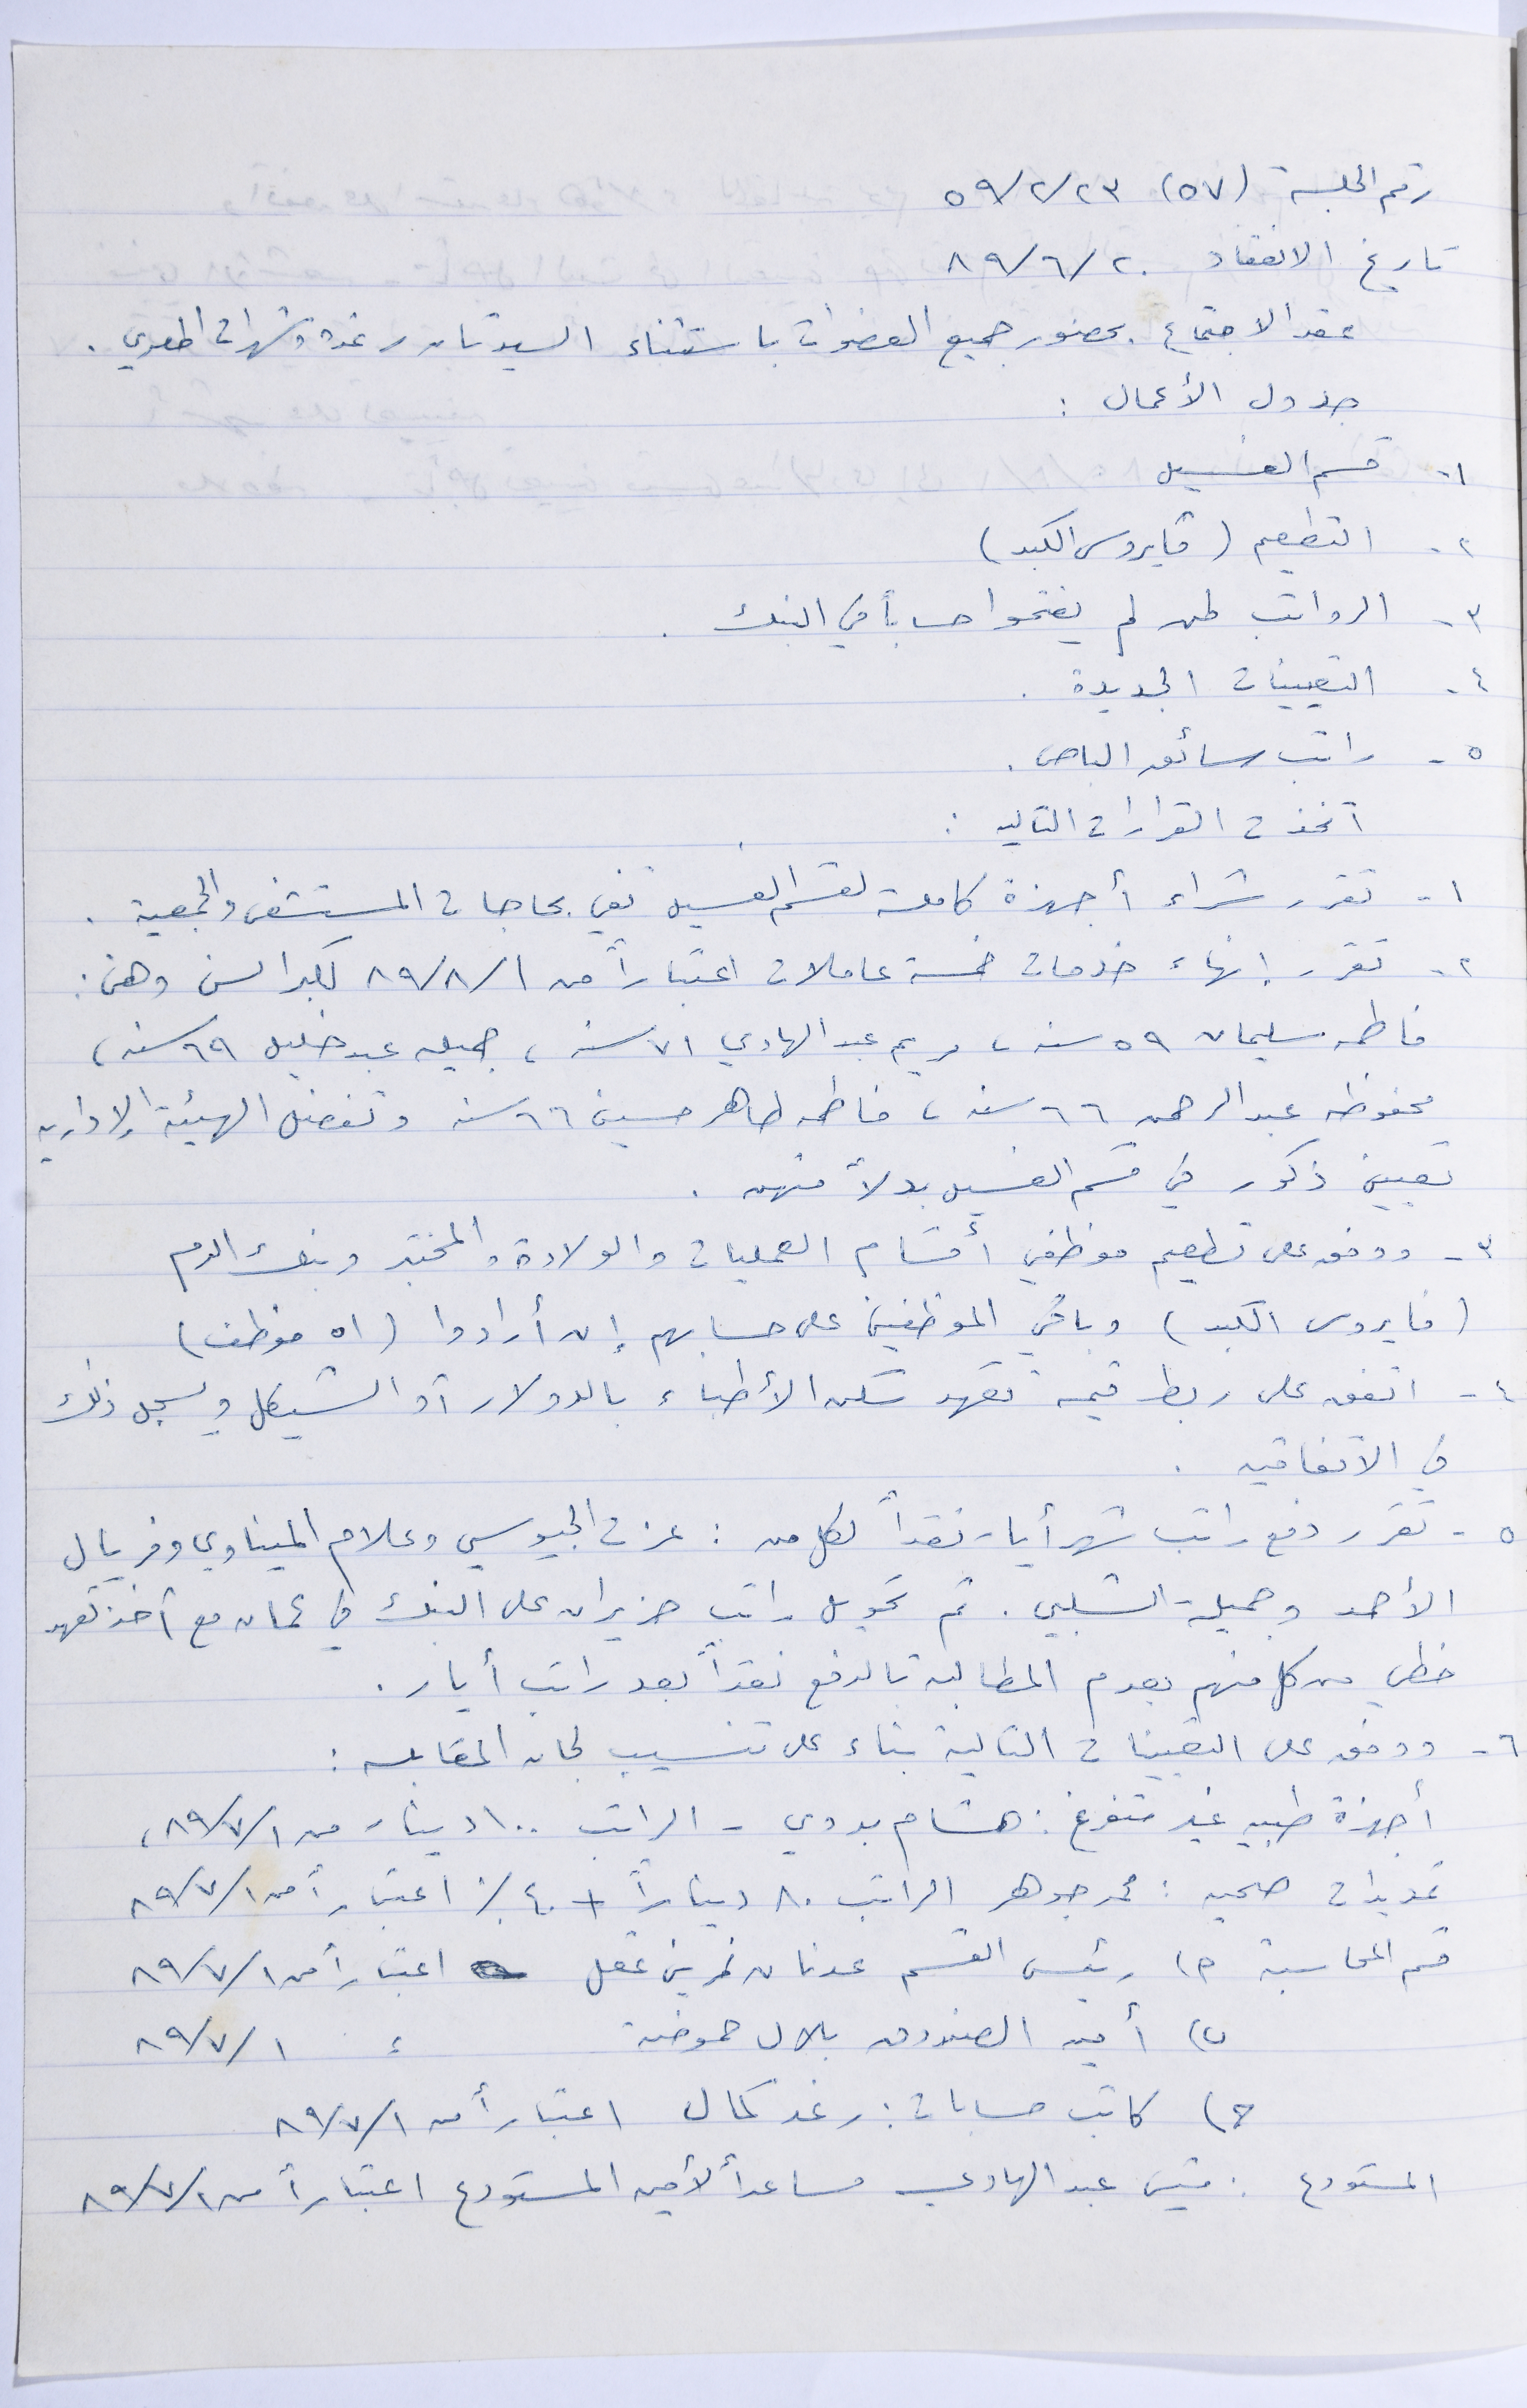 رقم الجلسة (٥٧) ٥٩/٢/٢٣
تاريخ الانعقاد ٨٩/٦/٢٠
عقد الاجتماع بحضور جميع العضوات باستثناء السيدتان رغدة وشهرات المصري .
جدول الأعمال :
١- قسم الغسيل
٢- التطعيم (فايروس الكبد)
٣- الرواتب لمن لم يفتحوا حساباً في البنك .
٤- التعيينات الجديدة .
٥- راتب سائق الباص .
اتخذت القرارات التاليه :
١- تقرر شراء أجهزة كاملة لقسم الغسيل تفي بحاجات المستشفى والجمعية .
٢- تقرر إنهاء خدمات خمسة عاملات اعتباراً من ٨٩/٨/١ لكبر السن وهن :
فاطمه سليمان ٥٩ سنه ، مريم عبد الهادي ٧١ سنه ، جميله عبد خليل ٦٩ سنه ،
محفوظه عبد الرحمن ٦٦ سنه ، فاطمه طاهر حسين ٦٦ سنه وتفضل الهيئة الإداريه
تعيين ذكور في قسم الغسيل بدلاً منهن .
٣- ووفق على تطعيم موظفي أقسام العمليات والولادة والمختبر وبنك الدم
(فايروس الكبد) وباقي الموظفين على حسابهم إن أرادوا (٥١ موظف)
٤- اتفق على ربط قيمة تعهد سكن الأطباء بالدولار أو الشيكل ويسجل ذلك
في الاتفاقيه .
٥- تقرر دفع راتب شهر أيار نقداً لكل من : عزت الجيوسي وعلام الميناوي وفريال
الأحمد وجميلة الشلبي . تم تحويل راتب حزيران على البنك في عمان مع أخذ تعهد
خطي من كل منهم بعدم المطالبة بالدفع نقداً بعد راتب أيار .
٦- ووفق على التعيينات التالية بناء على تنسيب لجان المقابله :
أجهزة طبيه غير متفرغ : هشام بدوي - الراتب ١٠٠ دينار من ٨٩/٧/١ ،
تمديدات صحيه : محمد جوهر الراتب ٨٠ ديناراً + ٤٠٪ اعتباراً من ٨٩/٧/١
قسم المحاسبة ١) رئيس القسم عدنان نمر عقل اعتباراً من ٨٩/٧/١
٢) أمين الصندوق بلال حموضة ، ٨٩/٧/١
٣) كاتب حسابات : رغد كمال اعتباراً من ٨٩/٧/١
المستودع : قيس عبد الهادي مساعداً لأمين المستودع اعتباراً من ٨٩/٧/١